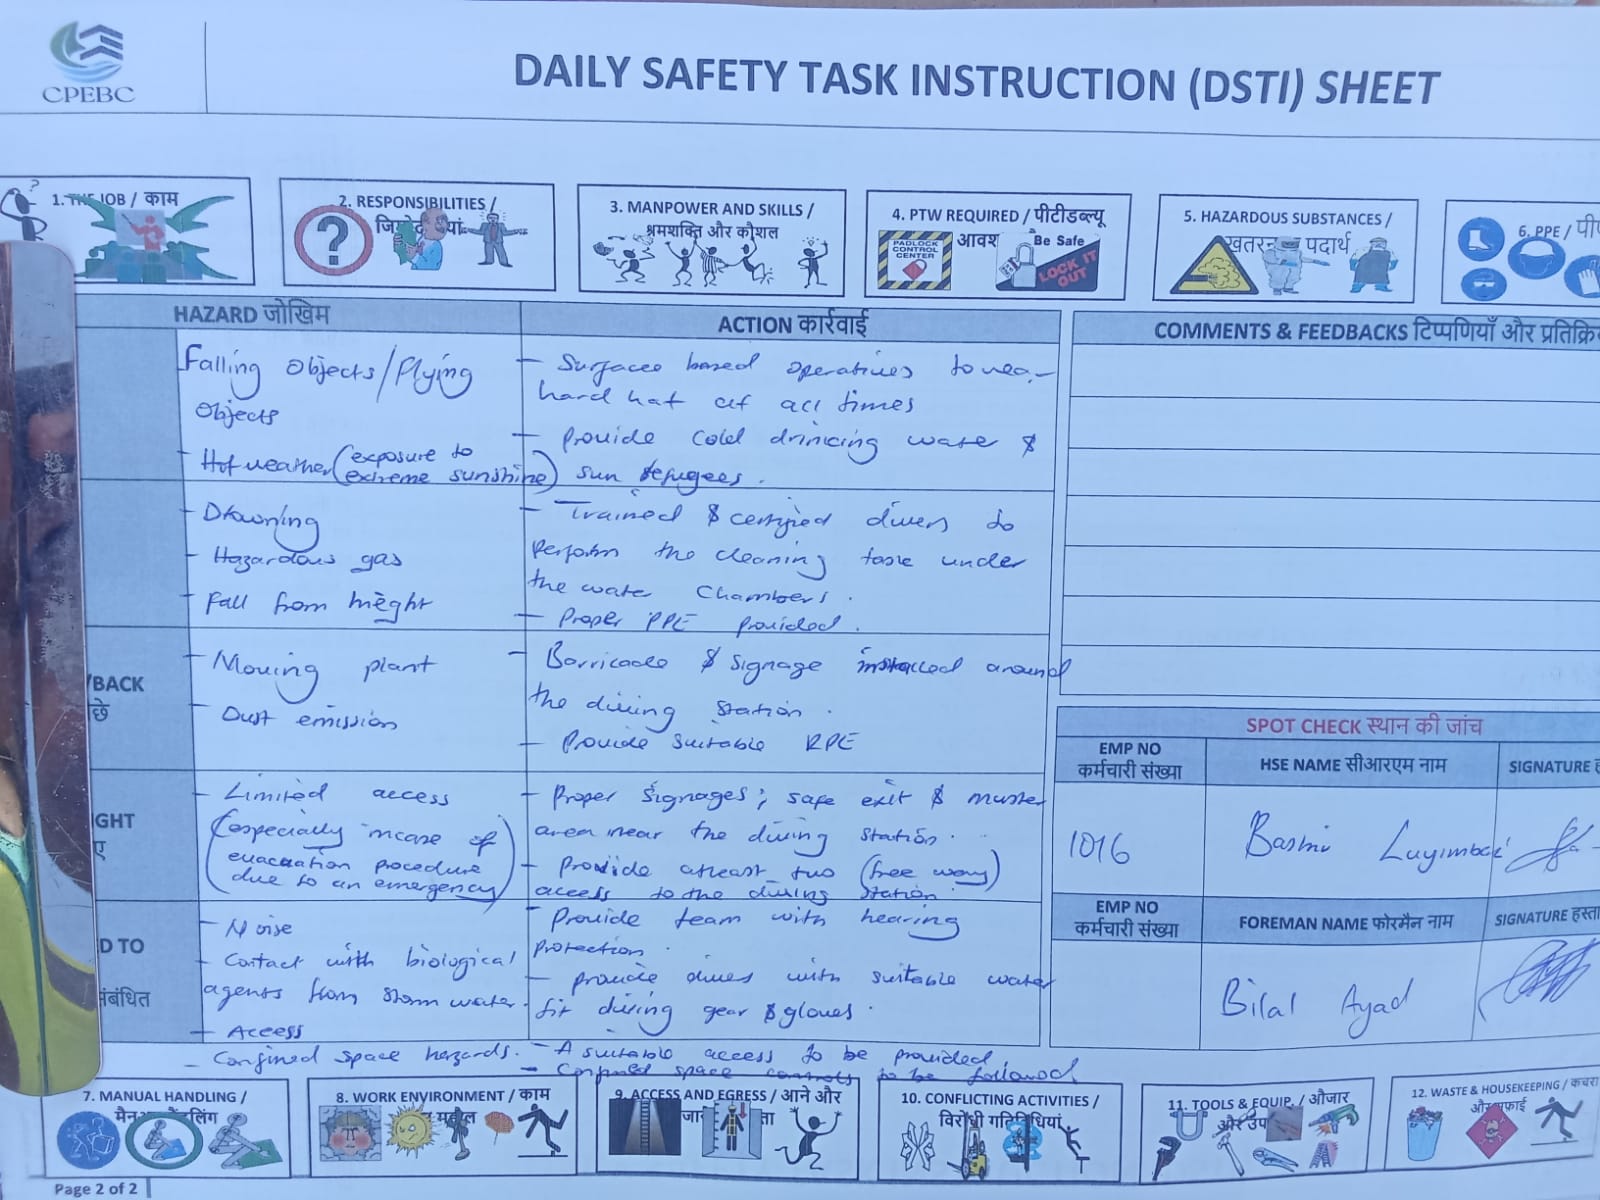 CPEBC
DAILY SAFETY TASK INSTRUCTION (DSTI) SHEET
1. THE JOB / काम
2. RESPONSIBILITIES /
3. MANPOWER AND SKILLS /
श्रमशक्ति और कौशल
4. PTW REQUIRED / पीटीडब्ल्यू
आवश
PADLOCK
CONTROL
CENTER
Be Safe
LOCK IT
OUT
5. HAZARDOUS SUBSTANCES /
पदार्थ
6. PPE /
HAZARD जोखिम
ACTION कार्रवाई
Falling Objects/Flying
Objects
- Hot weather (exposure to
extreme sunshine)
- Surfaces based operatives to wear
hard hat at all times
- provide cold drinking water &
sun refugees.
- Drowning
- Hazardous gas
- Fall from hieght
- Trained & certified divers to
perform the cleaning task under
the water chambers.
- Proper PPE provided.
/BACK
छे
- Moving plant
- Dust emission
- Barricade & signage installed around
the diving station.
- Provide suitable RPE
GHT
ए
- Limited access
(especially incase of
evacuation procedure
due to an emergency)
- Proper signages; safe exit & muster
area near the diving station.
- Provide atleast two (free way)
access to the diving station.
D TO
संबंधित
- Noise
- Contact with biological
agents from storm water.
- Access
- Confined space hazards.
- Provide team with hearing
protection.
- provide divers with suitable water
fit diving gear & gloves.
- A suitable access to be provided
- Confined space controls to be followed
COMMENTS & FEEDBACKS टिप्पणियाँ और
SPOT CHECK स्थान की जांच
EMP NO
कर्मचारी संख्या
HSE NAME सीआरएम नाम
SIGNATURE
1016
Bashir
EMP NO
कर्मचारी संख्या
FOREMAN NAME फोरमैन नाम
SIGNATURE
Bilal Ayad
7. MANUAL HANDLING /
8. WORK ENVIRONMENT / काम
9. ACCESS AND EGRESS / आने और
10. CONFLICTING ACTIVITIES /
विरोधी गतिविधियां
11. TOOLS & EQUIP. / औजार
12. WASTE & HOUSEKEEPING / कचरा
Page 2 of 2